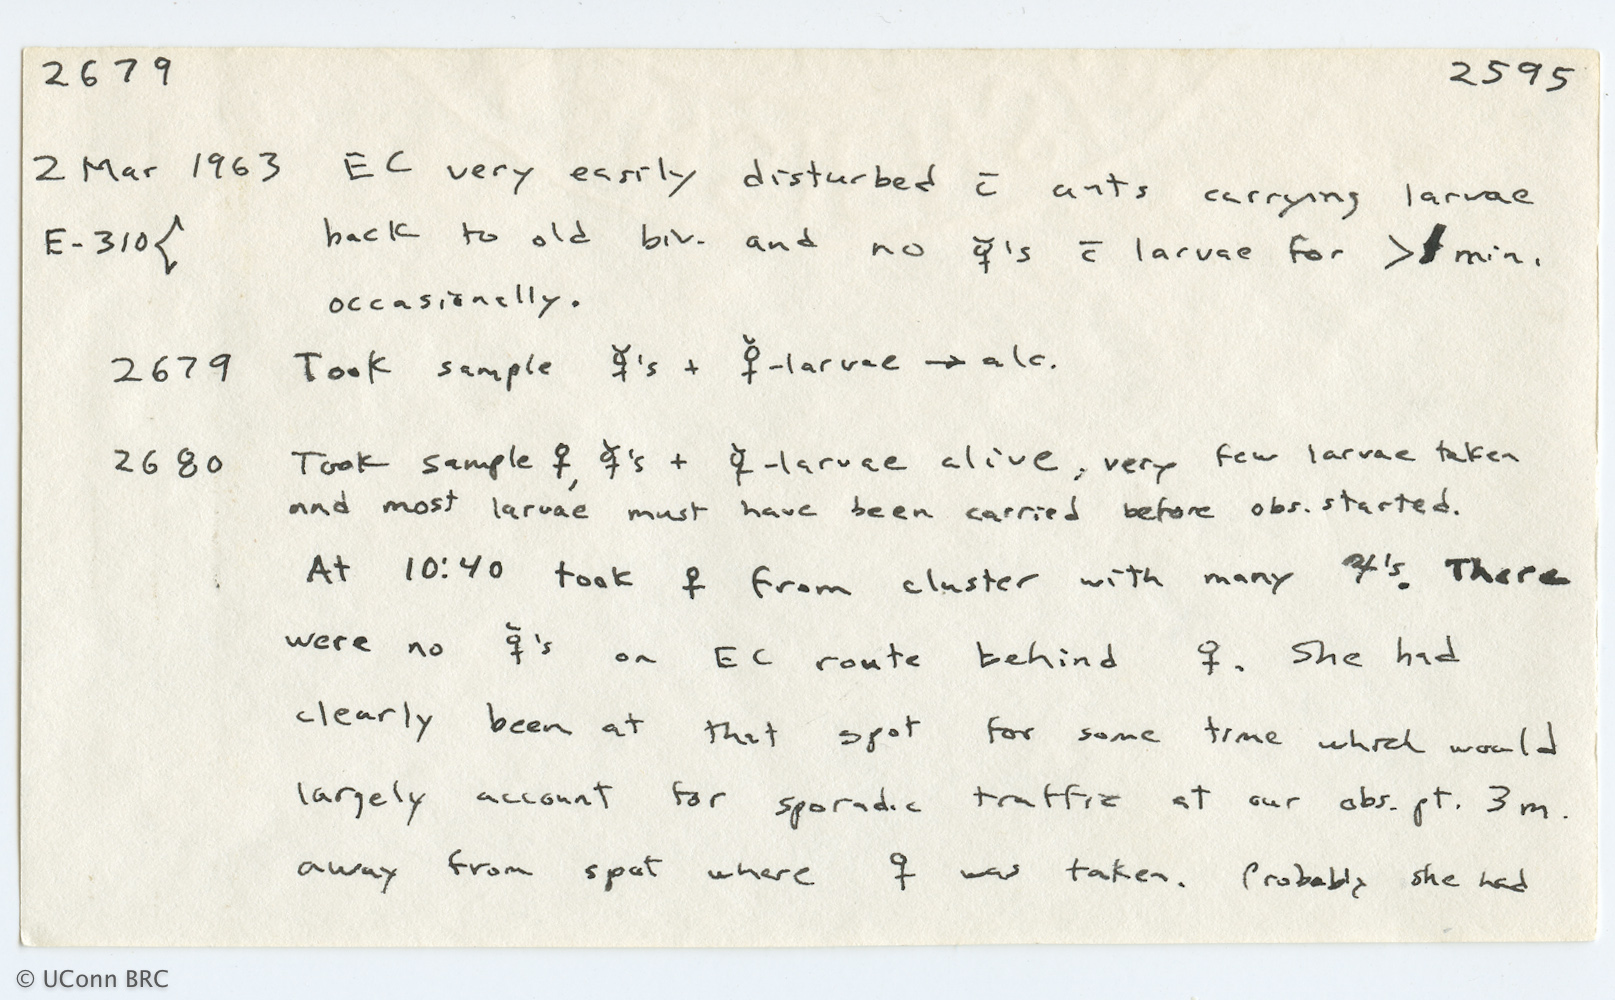 2679 2595
2 Mar 1963 EC very easily disturbed c̄ ants carrying larvae
E-310{ back to old biv. and no ☿'s c̄ larvae for > 1 min.
occasionally.
2679 Took sample ☿'s + ☿-larvae → alc.
2680 Took sample ♀, ☿'s + ☿-larvae alive, very few larvae taken
and most larvae must have been carried before obs. started.
At 10:40 took ♀ from cluster with many ♃'s. There
were no ☿'s on EC route behind ♀. She had
clearly been at that spot for some time which would
largely account for sporadic traffic at our obs. pt. 3 m.
away from spot where ♀ was taken. Probably she had
© UConn BRC